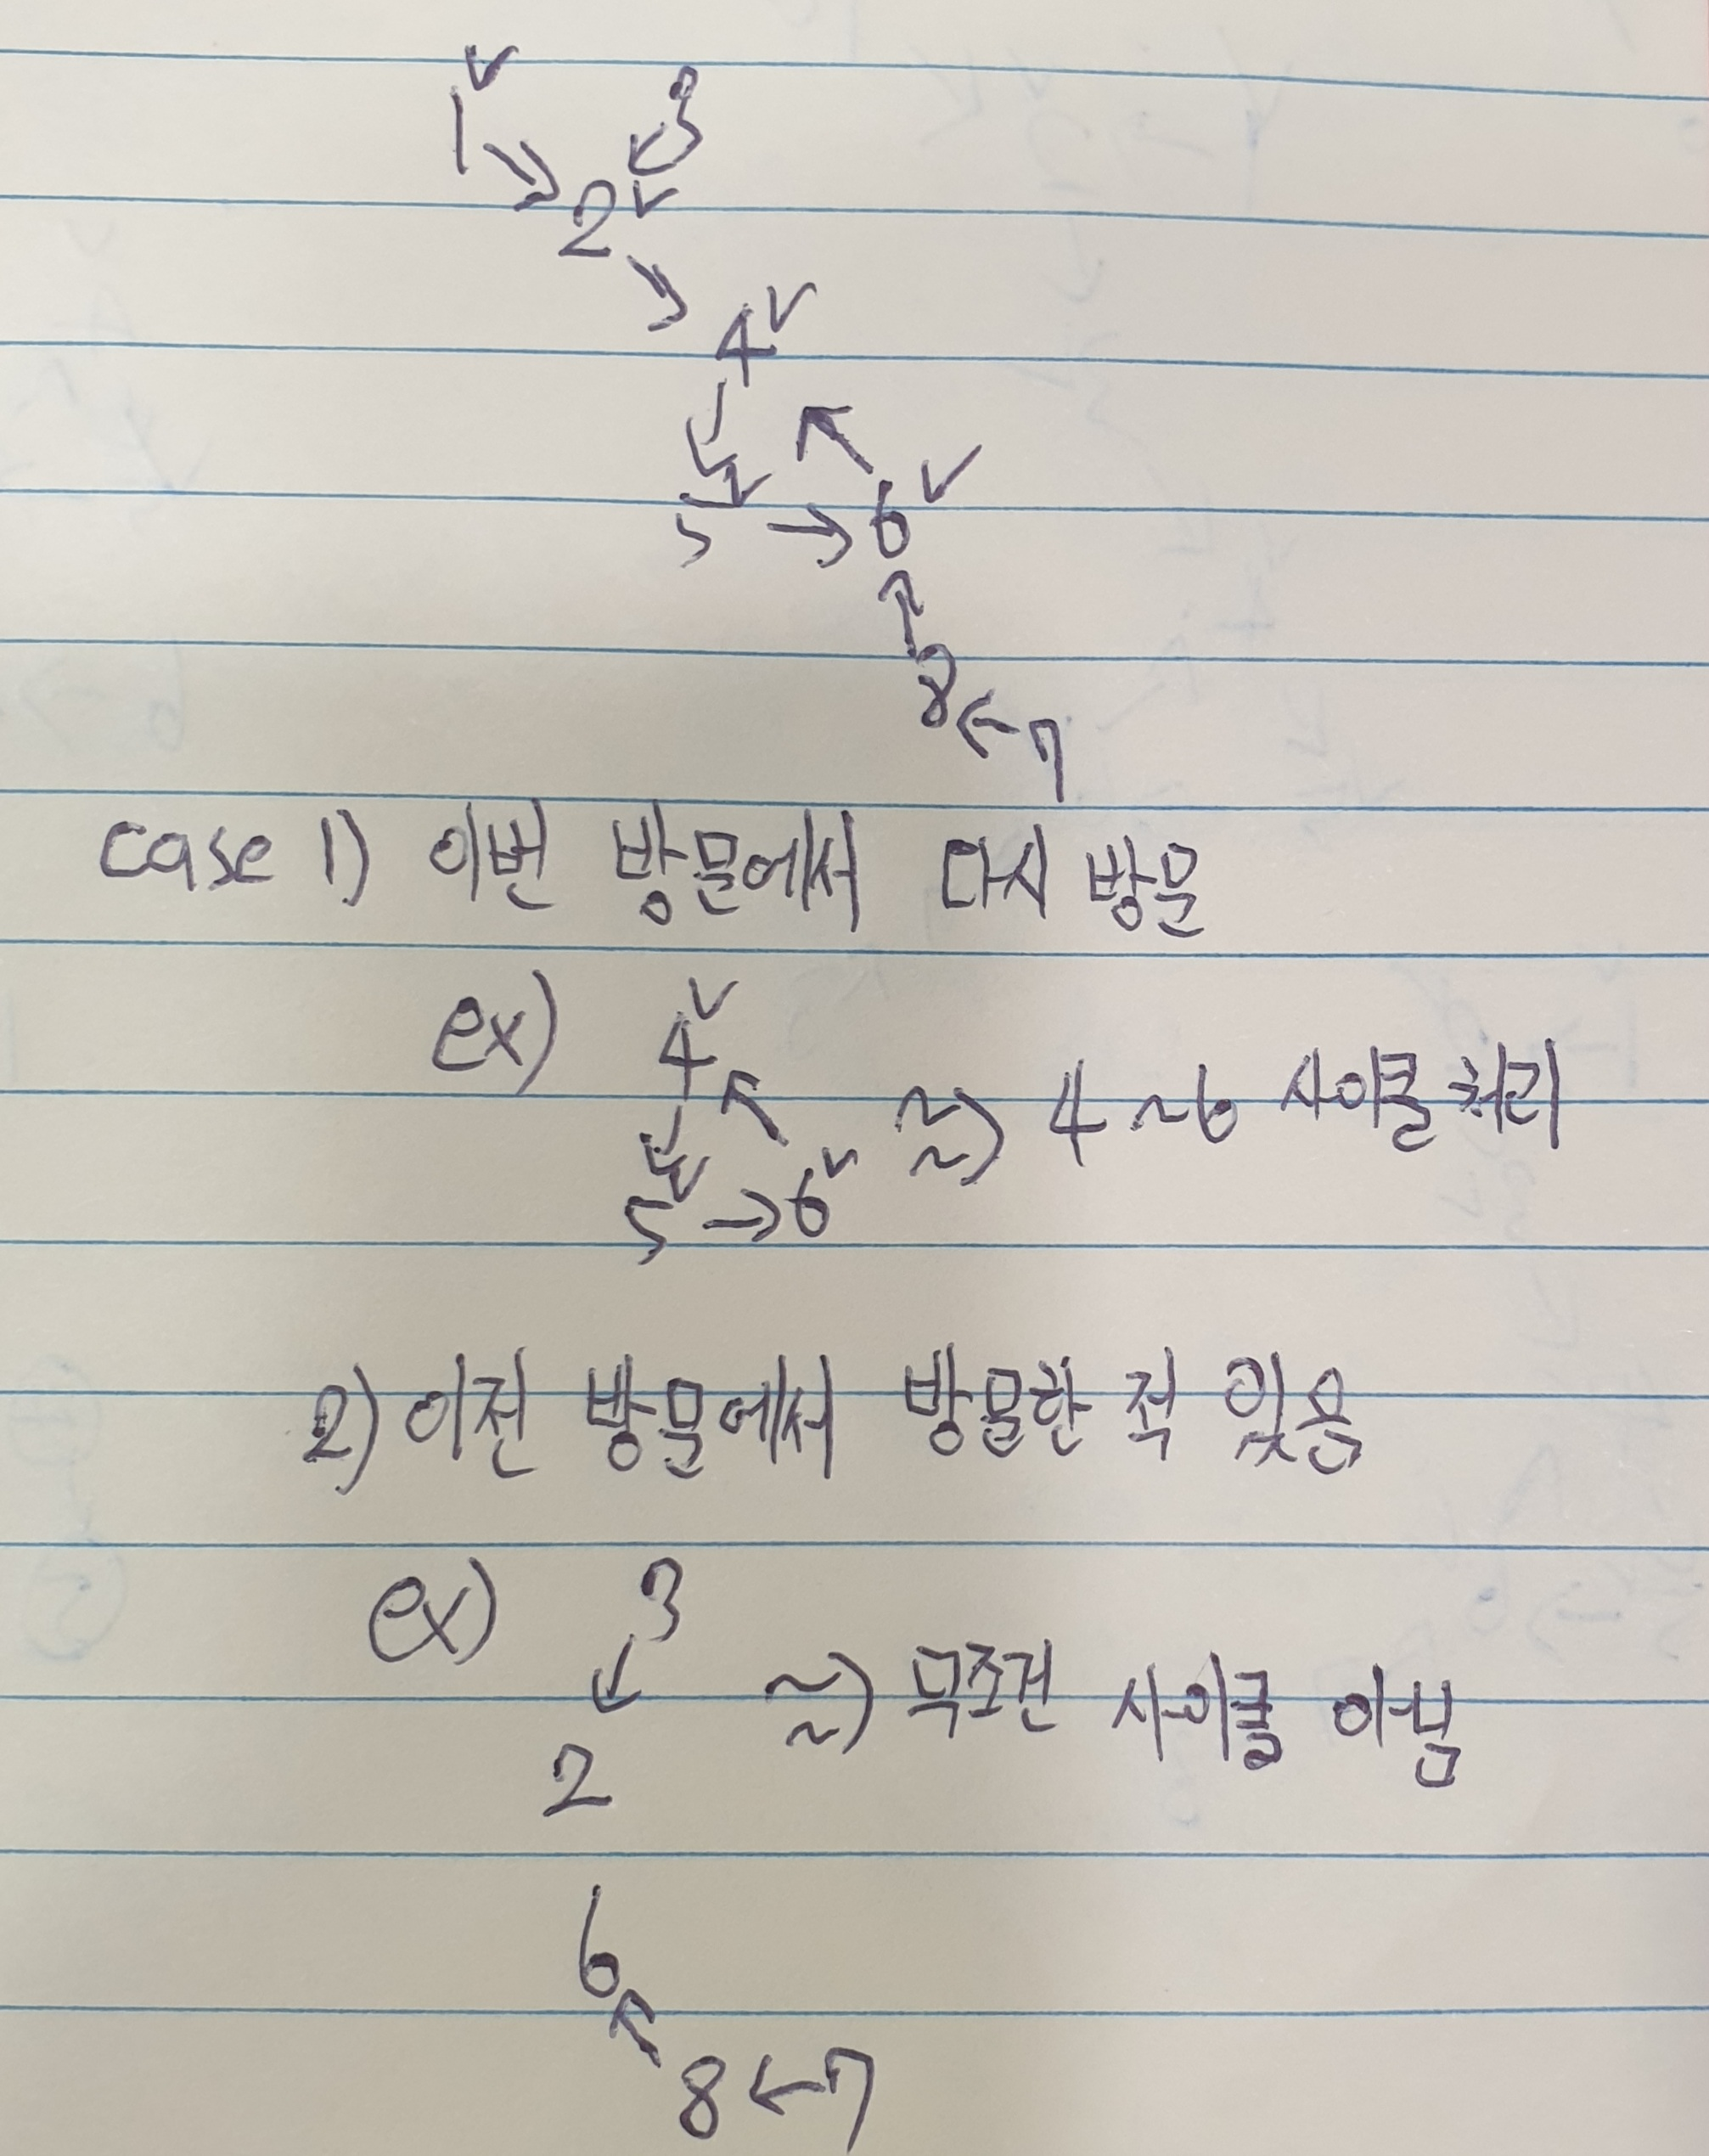 1 3
2
4
5 → 6
8 ← 7
case 1) 이번 방문에서 다시 방문
ex) 4
5 → 6 ⇒ 4 ~ 6 사이클 처리
2) 이전 방문에서 방문한 적 있음
ex) 3
2 ⇒ 무조건 사이클 아님
6
8 ← 7